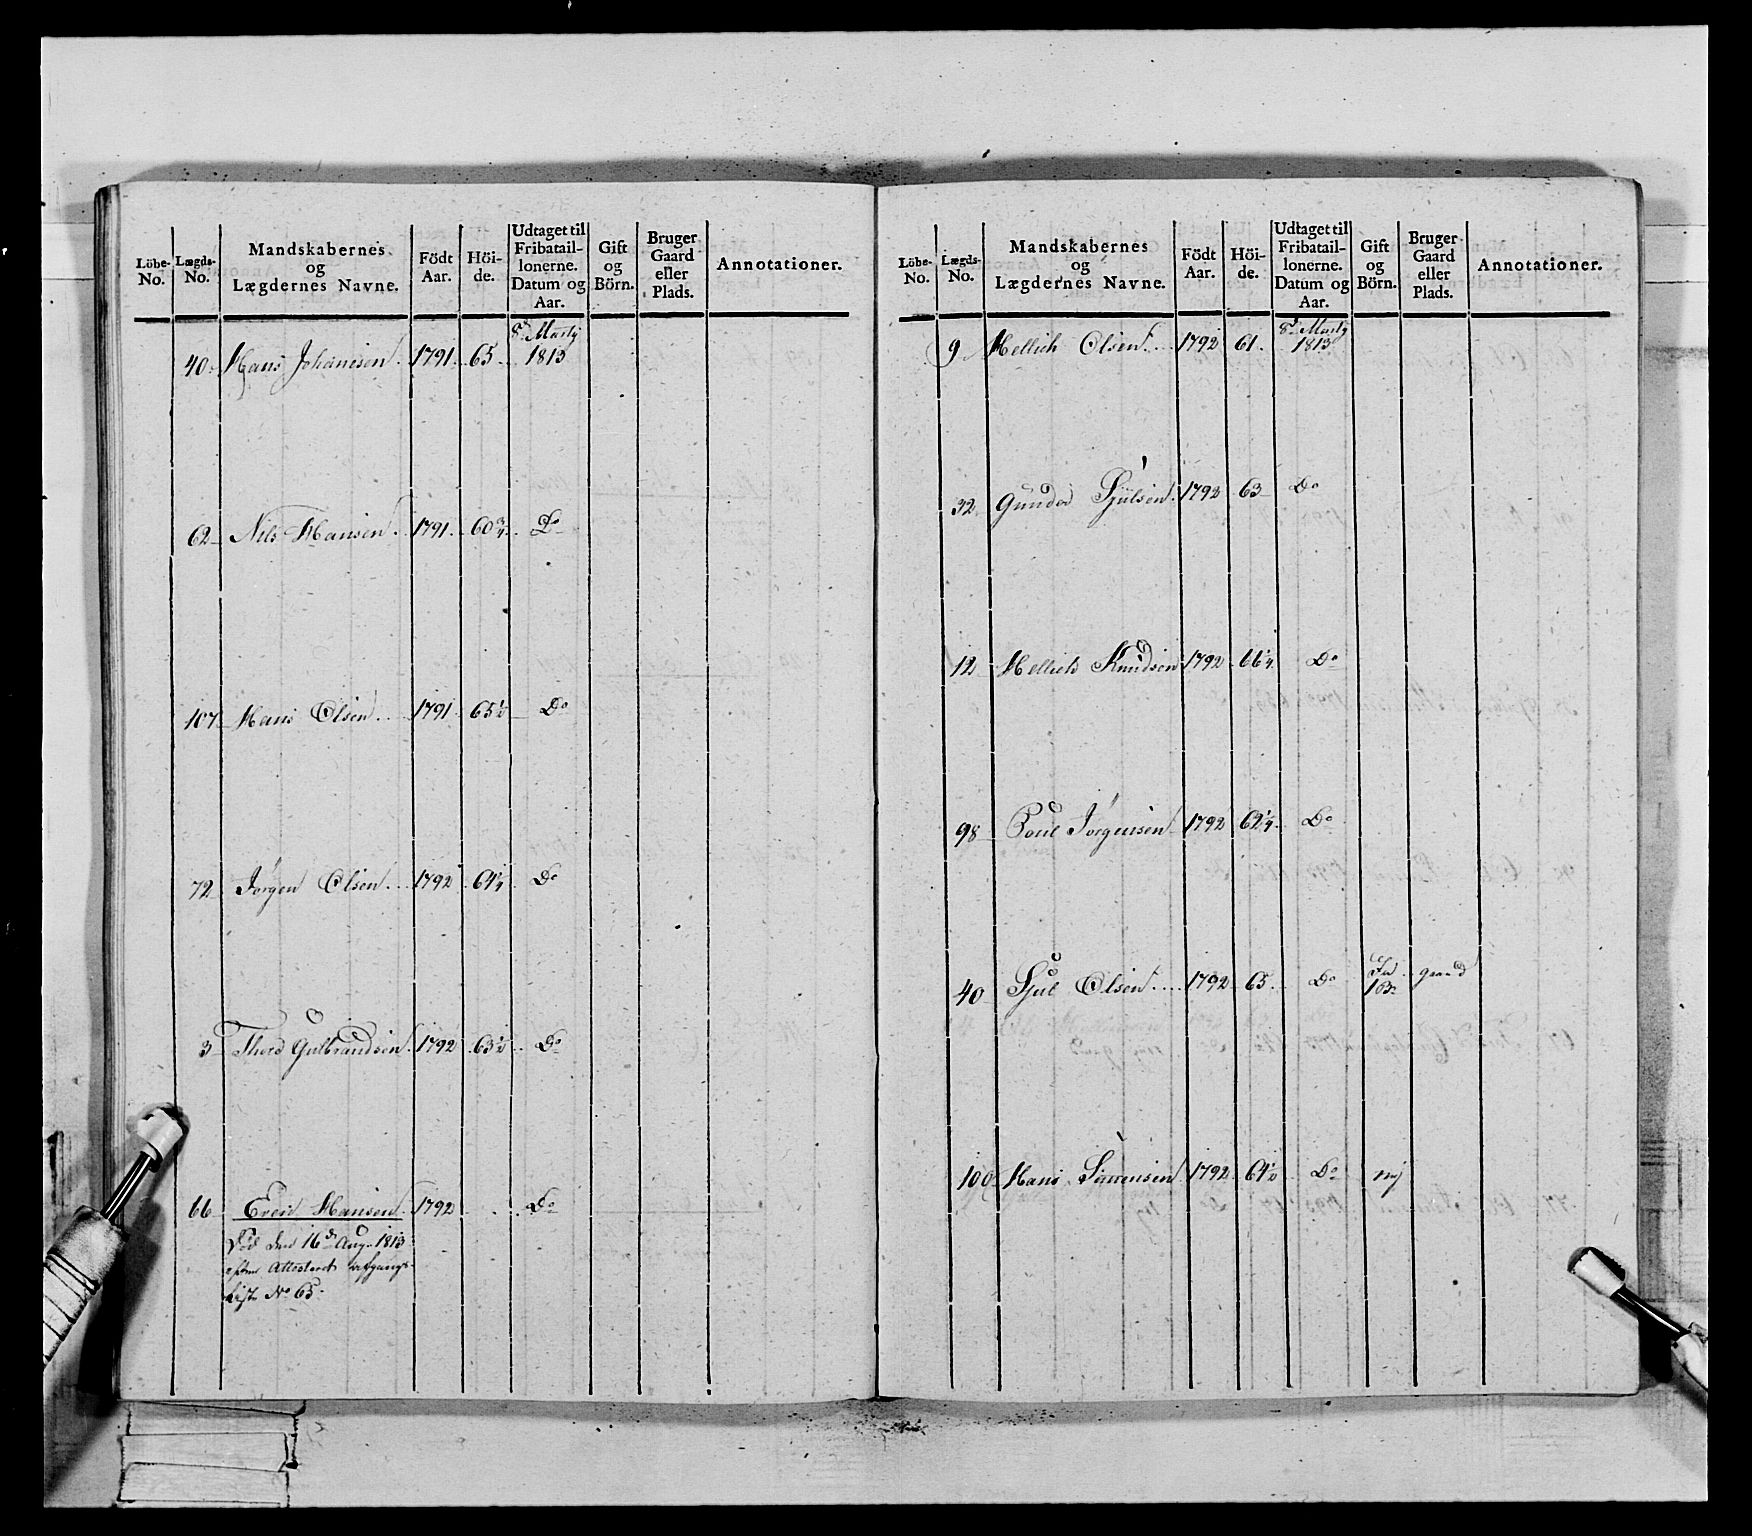 Löbe-No. Lægds-No. Mandskabernes og Lægdernes Navne. Födt Aar. Höi-de. Udtaget til Fribatail-lonerne. Datum og Aar. Gift og Börn. Bruger Gaard eller Plads. Annotationer.
40. Hans Johansen. 1791. 65. 8d Martij 1813
62 Nils Hansen. 1791. 60 3/4. Do
107 Hans Olsen. 1791 65 1/2 Do
72 Jörgen Olsen. 1792 64 1/4 Do
3 Thord Gulbrandsen. 1792 63 1/2 Do
66 Even Hansen. 1792 Do
Död den 16de Aug. 1813
efter Attesteret afgangs-
liste No 65.
Löbe-No. Lægds-No. Mandskabernes og Lægdernes Navne. Födt Aar. Höi-de. Udtaget til Fribatail-lonerne. Datum og Aar. Gift og Börn. Bruger Gaard eller Plads. Annotationer.
9 Hellich Olsen. 1792 61. 8d Martij 1813
32 Gunder Sjulsen. 1792 63 Do
12 Hellich Knudsen 1792 66 1/4 Do
98 Poul Jörgensen 1792 62 1/4 Do
40 Sjul Olsen. 1792 65. Do Ja gaard
100 Hans Sörrensen 1792 64 1/2 Do nej